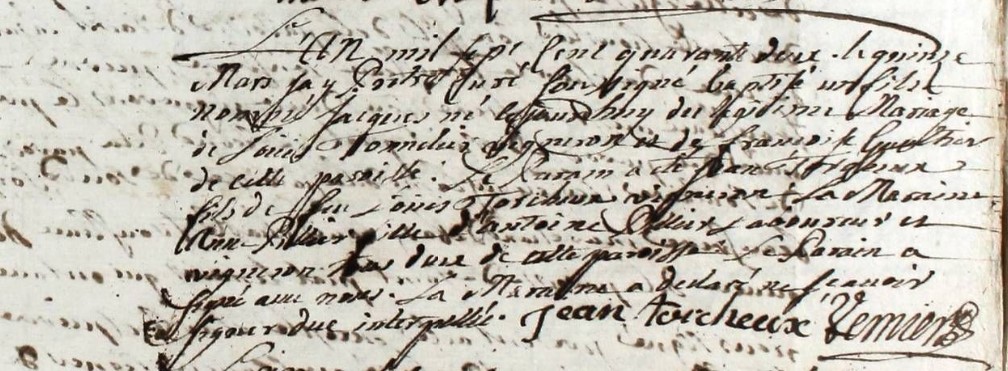 L'An mil sept Cent quarant deux le quinze
Mars Jay curé soussigné baptisé un fils
nommé Jacques né le jourdhuy du legitime Mariage
de Louis vigneron et de francoise Gaultier
de cette paroisse. Le Parain a été Jean Torcheux
fils de feu Louis Torcheux vigneron La Maraine
Anne fille d'antoine Laboureur et
vigneron tous deux de cette paroisse Le Parain a
signé avec nous. La Maraine a declaré ne scavoir
signer due interpellé. Jean torcheux